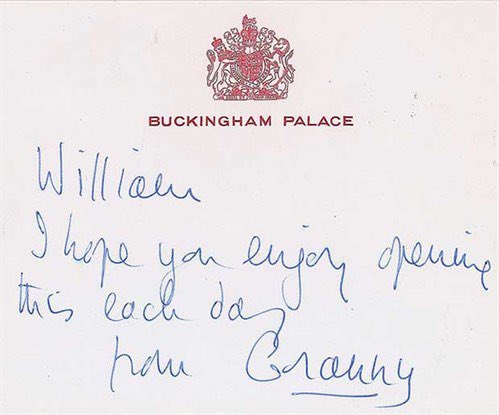 BUCKINGHAM PALACE
William
I hope you enjoy opening
this each day
from Granny